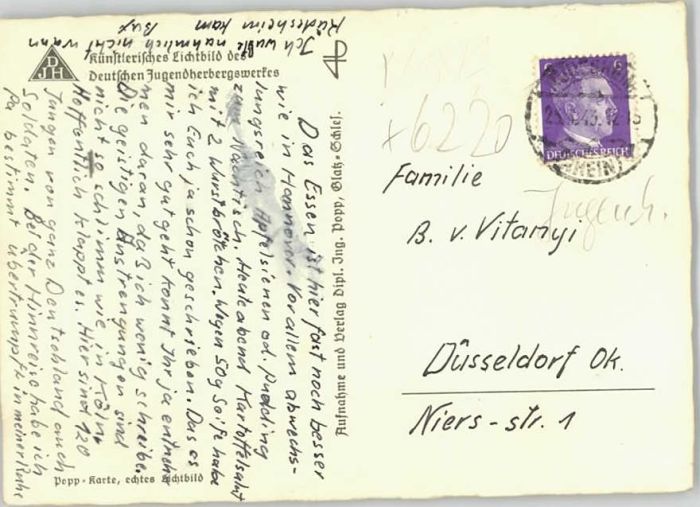 Künstlerisches Lichtbild des
Deutschen Jugendherbergswerkes
DJH
Das Essen ist hier fast noch besser
wie in Hannover. Vor allem abwechs-
lungsreich Apfelsienen od. Pudding
zum Nachtisch. Heute abend Kartoffelsalat
mit 2 Wurstbrötchen. Wegen 50g Seife habe
ich Euch ja schon geschrieben. Das es
mir sehr gut geht könnt Ihr ja entneh-
men daran, daß ich wenig schreibe.
Die geistigen Anstrengungen sind
nicht so schlimm wie in Köln.
Hoffentlich klappt es. Hier sind 120
Jungen von ganz Deutschland auch
Soldaten. Bei der Hinreise habe ich
Pa bestimmt übertrumpft in meiner Ruhe
Ich wußte nähmlich nicht wann
Rüdesheim kam
Aufnahme und Verlag Dipl. Ing. Popp, Glatz-Schles.
Popp-Karte, echtes Lichtbild
+6220
6 6
DEUTSCHES REICH
(RHEIN)
Jugendh.
Familie
B. v. Vitanyi
Düsseldorf Ok.
Niers-str. 1